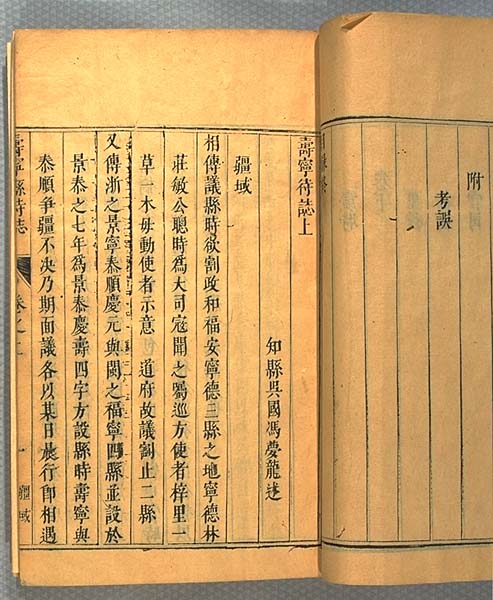 附
考誤
壽寧待誌上
知縣吳國馮夢龍述
疆域
相傳議縣時欲割政和福安寧德三縣之地寧德林
莊敏公聰時為大司寇聞之囑巡方使者梓里一
草一木毋動使者示意 道府故議割止二縣
又傳浙之景寧泰順慶元與閩之福寧四縣並設於
景泰之七年為景泰慶壽四字方設縣時壽寧與
泰順爭疆不決乃期面議各以某日晨行即相遇
壽寧縣待志 卷之上 一 疆域